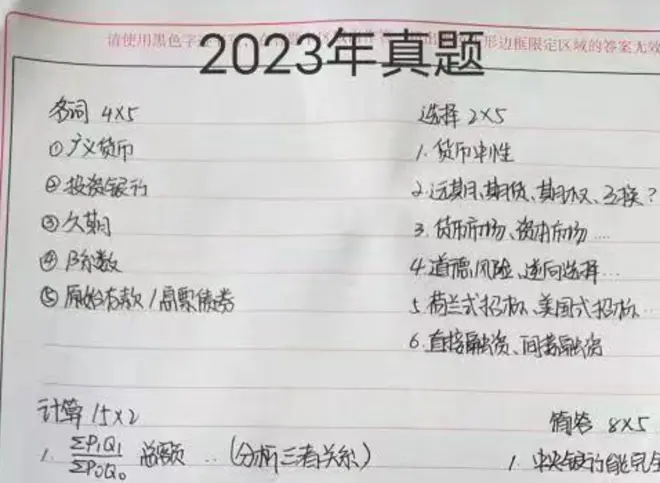 请使用黑色字
形边框限定区域的答案无效
2023年真题
名词 4×5
①广义货币
②投资银行
③久期
④β系数
⑤原始存款/高票债券
选择 2×5
1. 货币中性
2. 远期、期货、期权、互换?
3. 货币市场、资本市场....
4. 道德风险、逆向选择...
5. 荷兰式招标、美国式招标...
6. 直接融资、间接融资
计算 15×2
1. ΣP₁Q₁/ΣP₀Q₀ 总额 .. (分析三者关系)
简答 8×5
1. 中央银行能完全